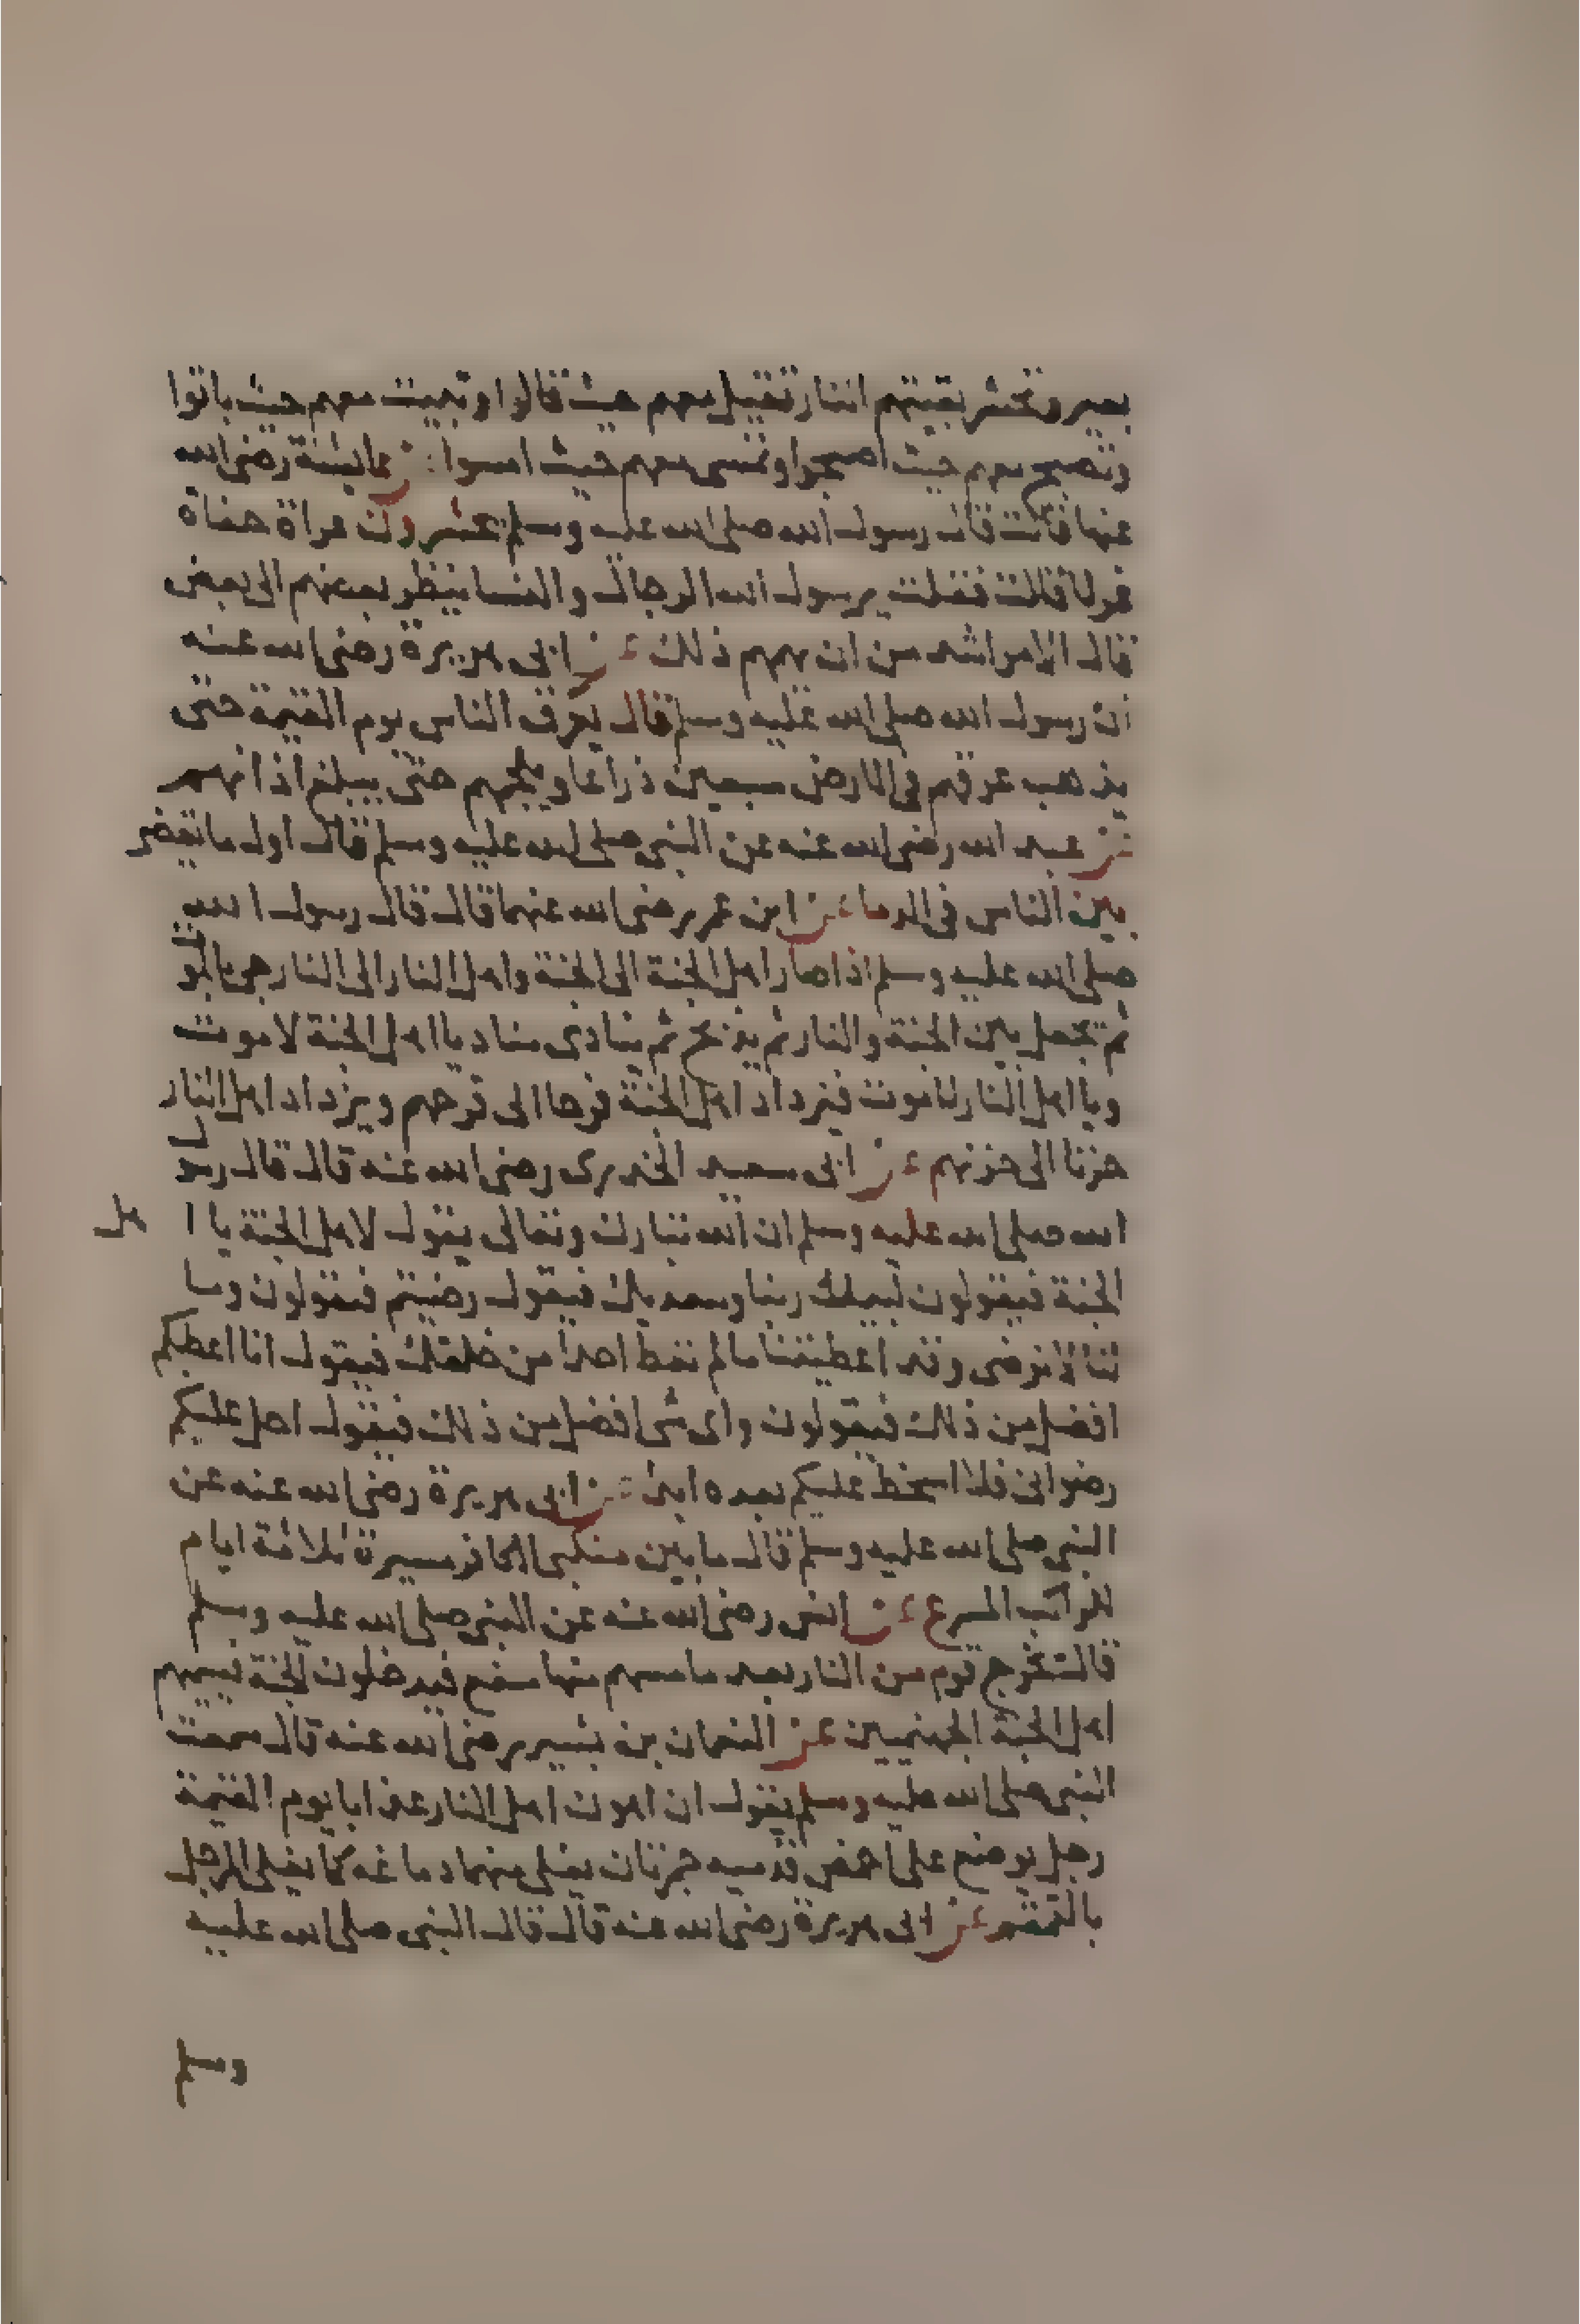 بعير وتحشر بقيتهم النار تقيل معهم حيث قالوا وتبيت معهم حيث باتوا
وتصبح معهم حيث اصبحوا وتمسى معهم حيث امسوا عن عايشة رضى الله
عنها قالت قال رسول الله صلى الله عليه وسلم تحشرون عراة حفاة
غرلا قالت فقلت يرسول الله الرجال والنسا ينظر بعضهم الى بعض
قال الامر اشد من ان يهمهم ذلك عن ابى هريرة رضى الله عنه
ان رسول الله صلى الله عليه وسلم قال يعرق الناس يوم القيمة حتى
يذهب عرقهم فى الارض سبعين ذراعا ويلجمهم حتى يبلغ اذانهم
عن عبد الله رضى الله عنه عن النبى صلى الله عليه وسلم قال اول ما يقضى
بين الناس فى الدما عن ابن عمر رضى الله عنهما قال قال رسول الله
صلى الله عليه وسلم اذا صار اهل الجنة الى الجنة واهل النار الى النار جئ بالموت
ثم تجعل بين الجنة والنار ثم يذبح ثم ينادى مناد يا اهل الجنة لا موت
ويا اهل النار لا موت فيزداد اهل الجنة فرحا الى فرحهم ويزداد اهل النار
حزنا الى حزنهم عن ابى سعيد الخدرى رضى الله عنه قال قال رسول
الله صلى الله عليه وسلم ان الله تبارك وتعالى يقول لاهل الجنة يا اهل
الجنة فيقولون لبيك ربنا وسعديك فيقول رضيتم فيقولون وما
لنا لا نرضى وقد اعطيتنا ما لم تعط احدا من خلقك فيقول انا اعطيكم
افضل من ذلك فيقولون واى شى افضل من ذلك فيقول احل عليكم
رضوانى فلا اسخط عليكم بعده ابدا عن ابى هريرة رضى الله عنه عن
النبى صلى الله عليه وسلم قال ما بين منكبى الكافر مسيرة ثلاثة ايام
للراكب المسرع عن انس رضى الله عنه عن النبى صلى الله عليه وسلم
قال يخرج قوم من النار بعد ما مسهم منها سفع فيدخلون الجنة فيسميهم
اهل الجنة الجهنميين عن النعمان بن بشير رضى الله عنه قال سمعت
النبى صلى الله عليه وسلم يقول ان اهون اهل النار عذابا يوم القيمة
رجل يوضع على اخمص قدميه جمرتان يغلى منهما دماغه كما يغلى المرجل
بالقمقم عن ابى هريرة رضى الله عنه قال قال النبى صلى الله عليه
وسلم